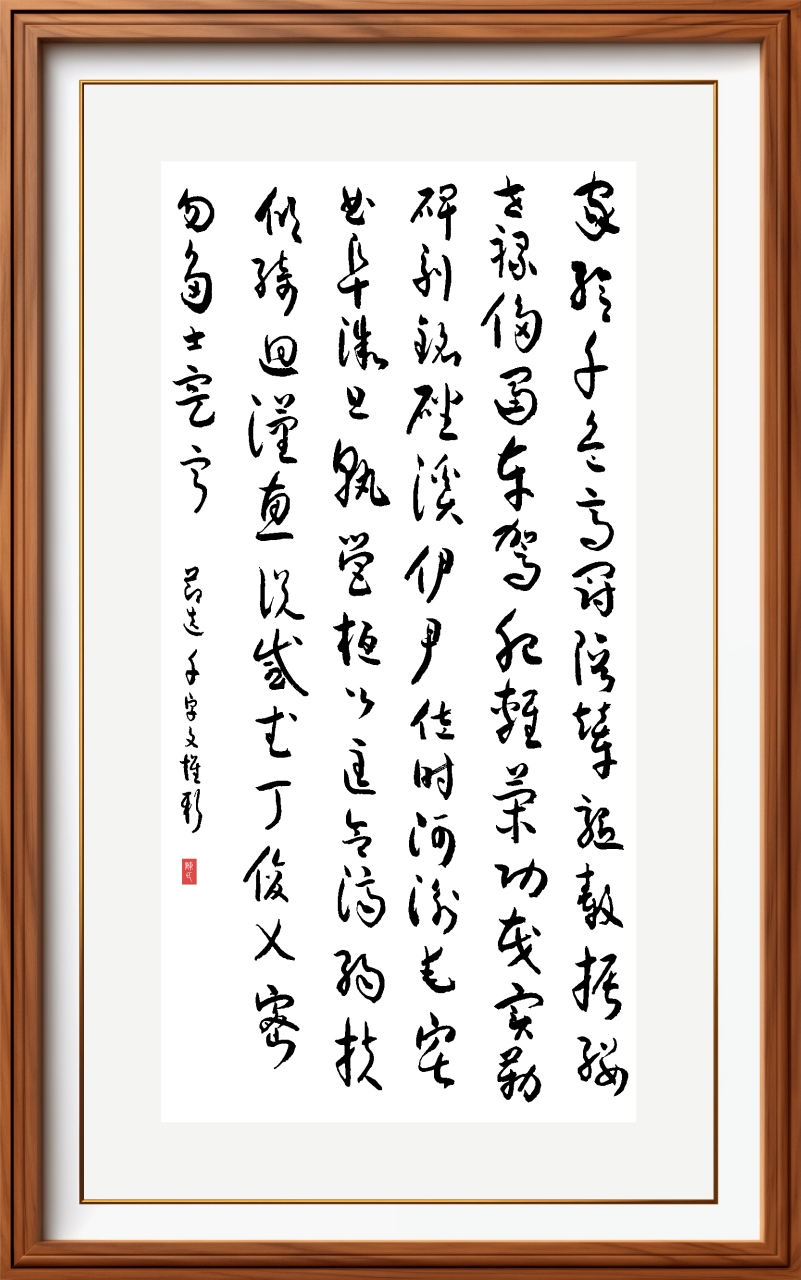 家給千兵高冠陪輦驅轂振纓
世祿侈富車駕肥輕策功茂實勒
碑刻銘磻溪伊尹佐時阿衡奄宅
曲阜微旦孰營桓公匡合濟弱扶
傾綺迴漢惠說感武丁俊乂密
勿多士寔寧
節選千字文